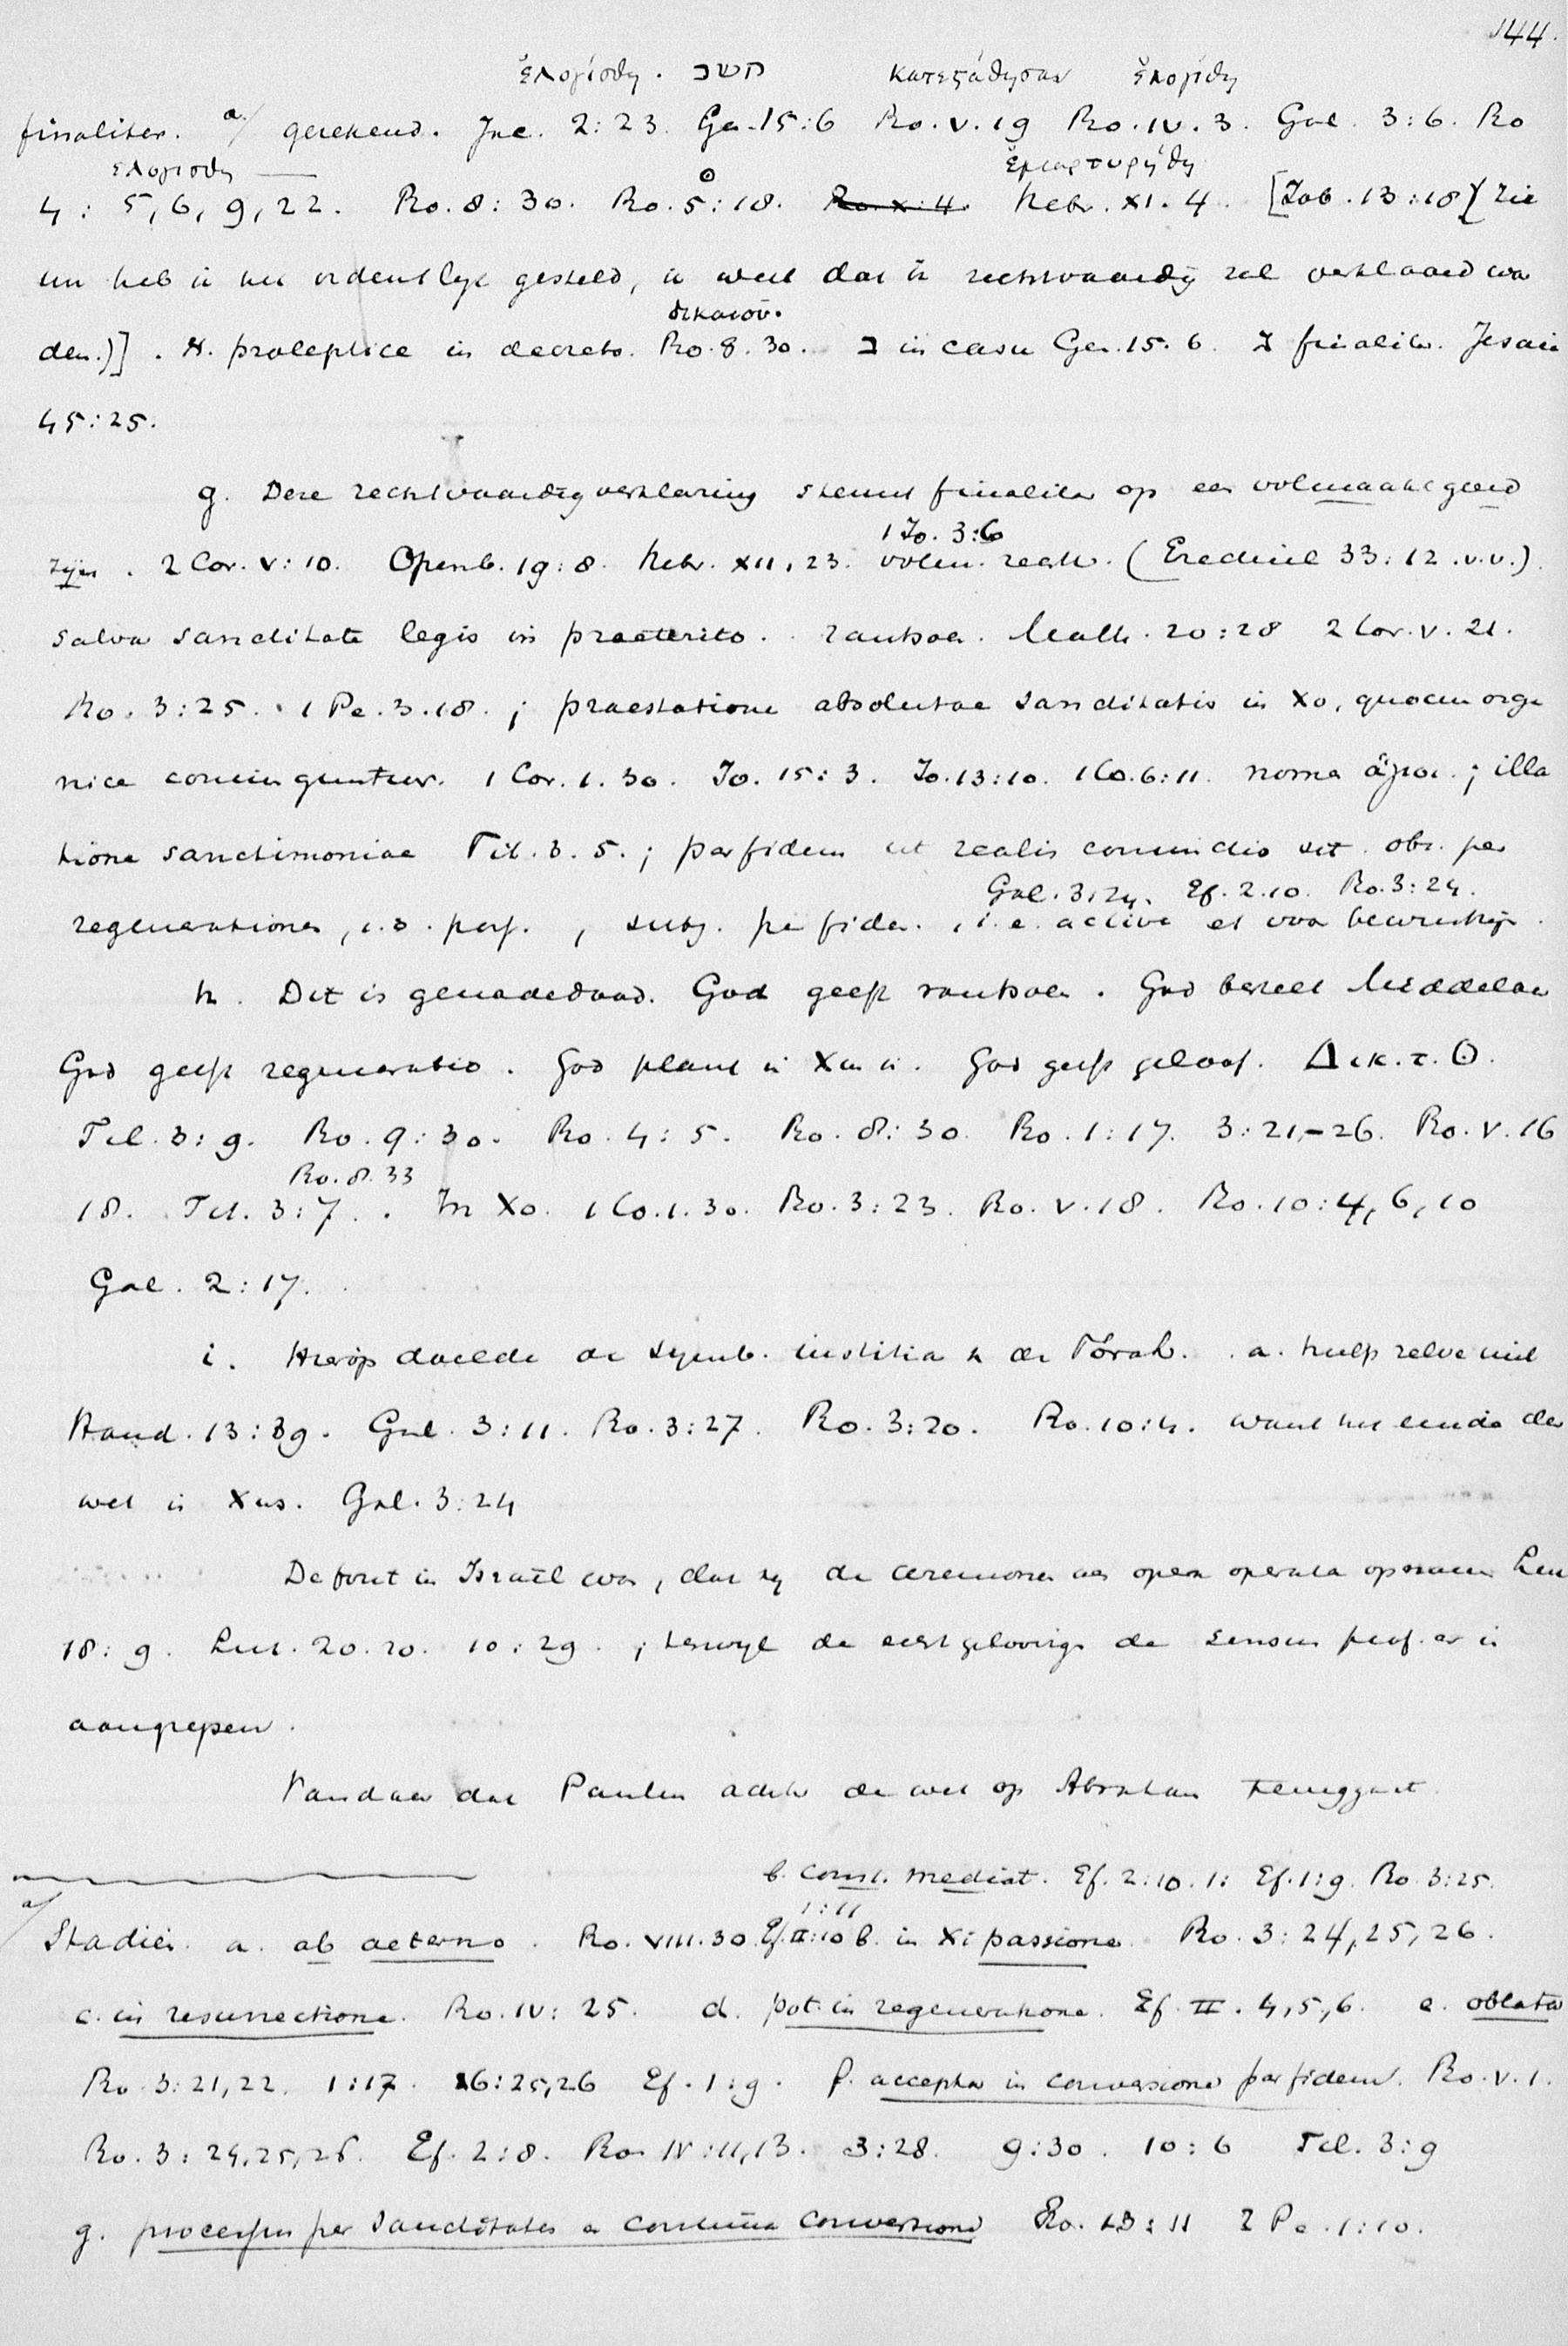 144.
ἐλογίσθη . חשב κατεστάθησαν ἐλογίσθη
finaliter. a/ gerekend. Jac. 2:23. Gen. 15:6 Ro. v. 19 Ro. IV. 3. Gal. 3:6. Ro
ελογισθη
ἐμαρτυρήθη
4: 5, 6, 9, 22. Ro. 8:30. Ro. 5:18. Ro. X:4. Hebr. XI. 4. [Job. 13:18 (zie
nu heb ik het ordentlijk gesteld, ik weet dat ik rechtvaardig zal verklaard wor
δικαιου.
den.)] . א. proleptice in decreto. Ro. 8. 30. ב in casu Gen. 15. 6. ג finaliter. Jesaia
45:25.
g. Deze rechtvaardigverklaring steunt finaliter op een volmaakt goed
1 Jo. 3:6
zijn. 2 Cor. V:10. Openb. 19:8. Hebr. XII, 23. volm. rechtv. (Ezechiel 33:12. v.v.).
salva sanctitate legis in praeterito. rantsoen. Matth. 20:28 2 Cor. V. 21.
Ro. 3:25. 1 Pe. 3.18. ; praestatione absolutae sanctitatis in Xo, quocum orga
nice coniunguntur. 1 Cor. 1. 30. Jo. 15:3. Jo. 13:10. 1 Co. 6:11. ἅγιοι. ; illa
tione sanctimoniae Tit. 3. 5. ; per fidem ut realis coniunctio sit. obj. per
Gal. 3:24. Ef. 2.10. Ro. 3:24.
regenerationem, , subj. per fidem. , i.e. active et voor bewustzijn.
h. Dit is genadedaad. God geeft rantsoen. God bestelt Middelaar
God geeft regeneratio. God plant in Xum in. God geeft geloof. Δικ. τ. Θ.
Fil. 3:9. Ro. 9:30. Ro. 4:5. Ro. 8:30. Ro. 1:17. 3:21,-26. Ro. V. 16
Ro. 8. 33
18. Tit. 3:7. . In Xo. 1 Co. 1. 30. Ro. 3:23. Ro. V. 18. Ro. 10:4, 6, 10
Gal. 2:17.
i. Hierop doelde de symb. iustitia in de Torah. a. hielp zelve niet
Hand. 13:39. Gal. 3:11. Ro. 3:27. Ro. 3:20. Ro. 10:4. want het einde der
wet is Xus. Gal. 3:24
De fout in Israël was, dat zij de ceremonien als opera operata opnamen Lev
18:9. Luc. 20.20. 10:29. ; terwijl de echt geloovigen de sensus prof. er in
aangrepen.
Vandaar dat Paulus achter de wet op Abraham teruggaat.
b. const. mediat. Ef. 2:10. 1: Ef. 1:9. Ro. 3:25.
a/
1:11
Stadiën. a. ab aeterno. Ro. VIII. 30 Ef. II:10 b. in Xi passione. Ro. 3:24, 25, 26.
c. in resurrectione. Ro. IV: 25. d. pot. in regeneratione. Ef. II. 4, 5, 6. e. oblata
Ro. 3:21, 22. 1:17. 16:25,26 Ef. 1:9. f. accepta in conversione per fidem. Ro. V. 1.
Ro. 3:24, 25, 26. Ef. 2:8. Ro. IV:11,13. 3:28. 9:30. 10:6 Fil. 3:9
g. processus per sanctitatem a continua conversione Ro. 13:11 2 Pe. 1:10.